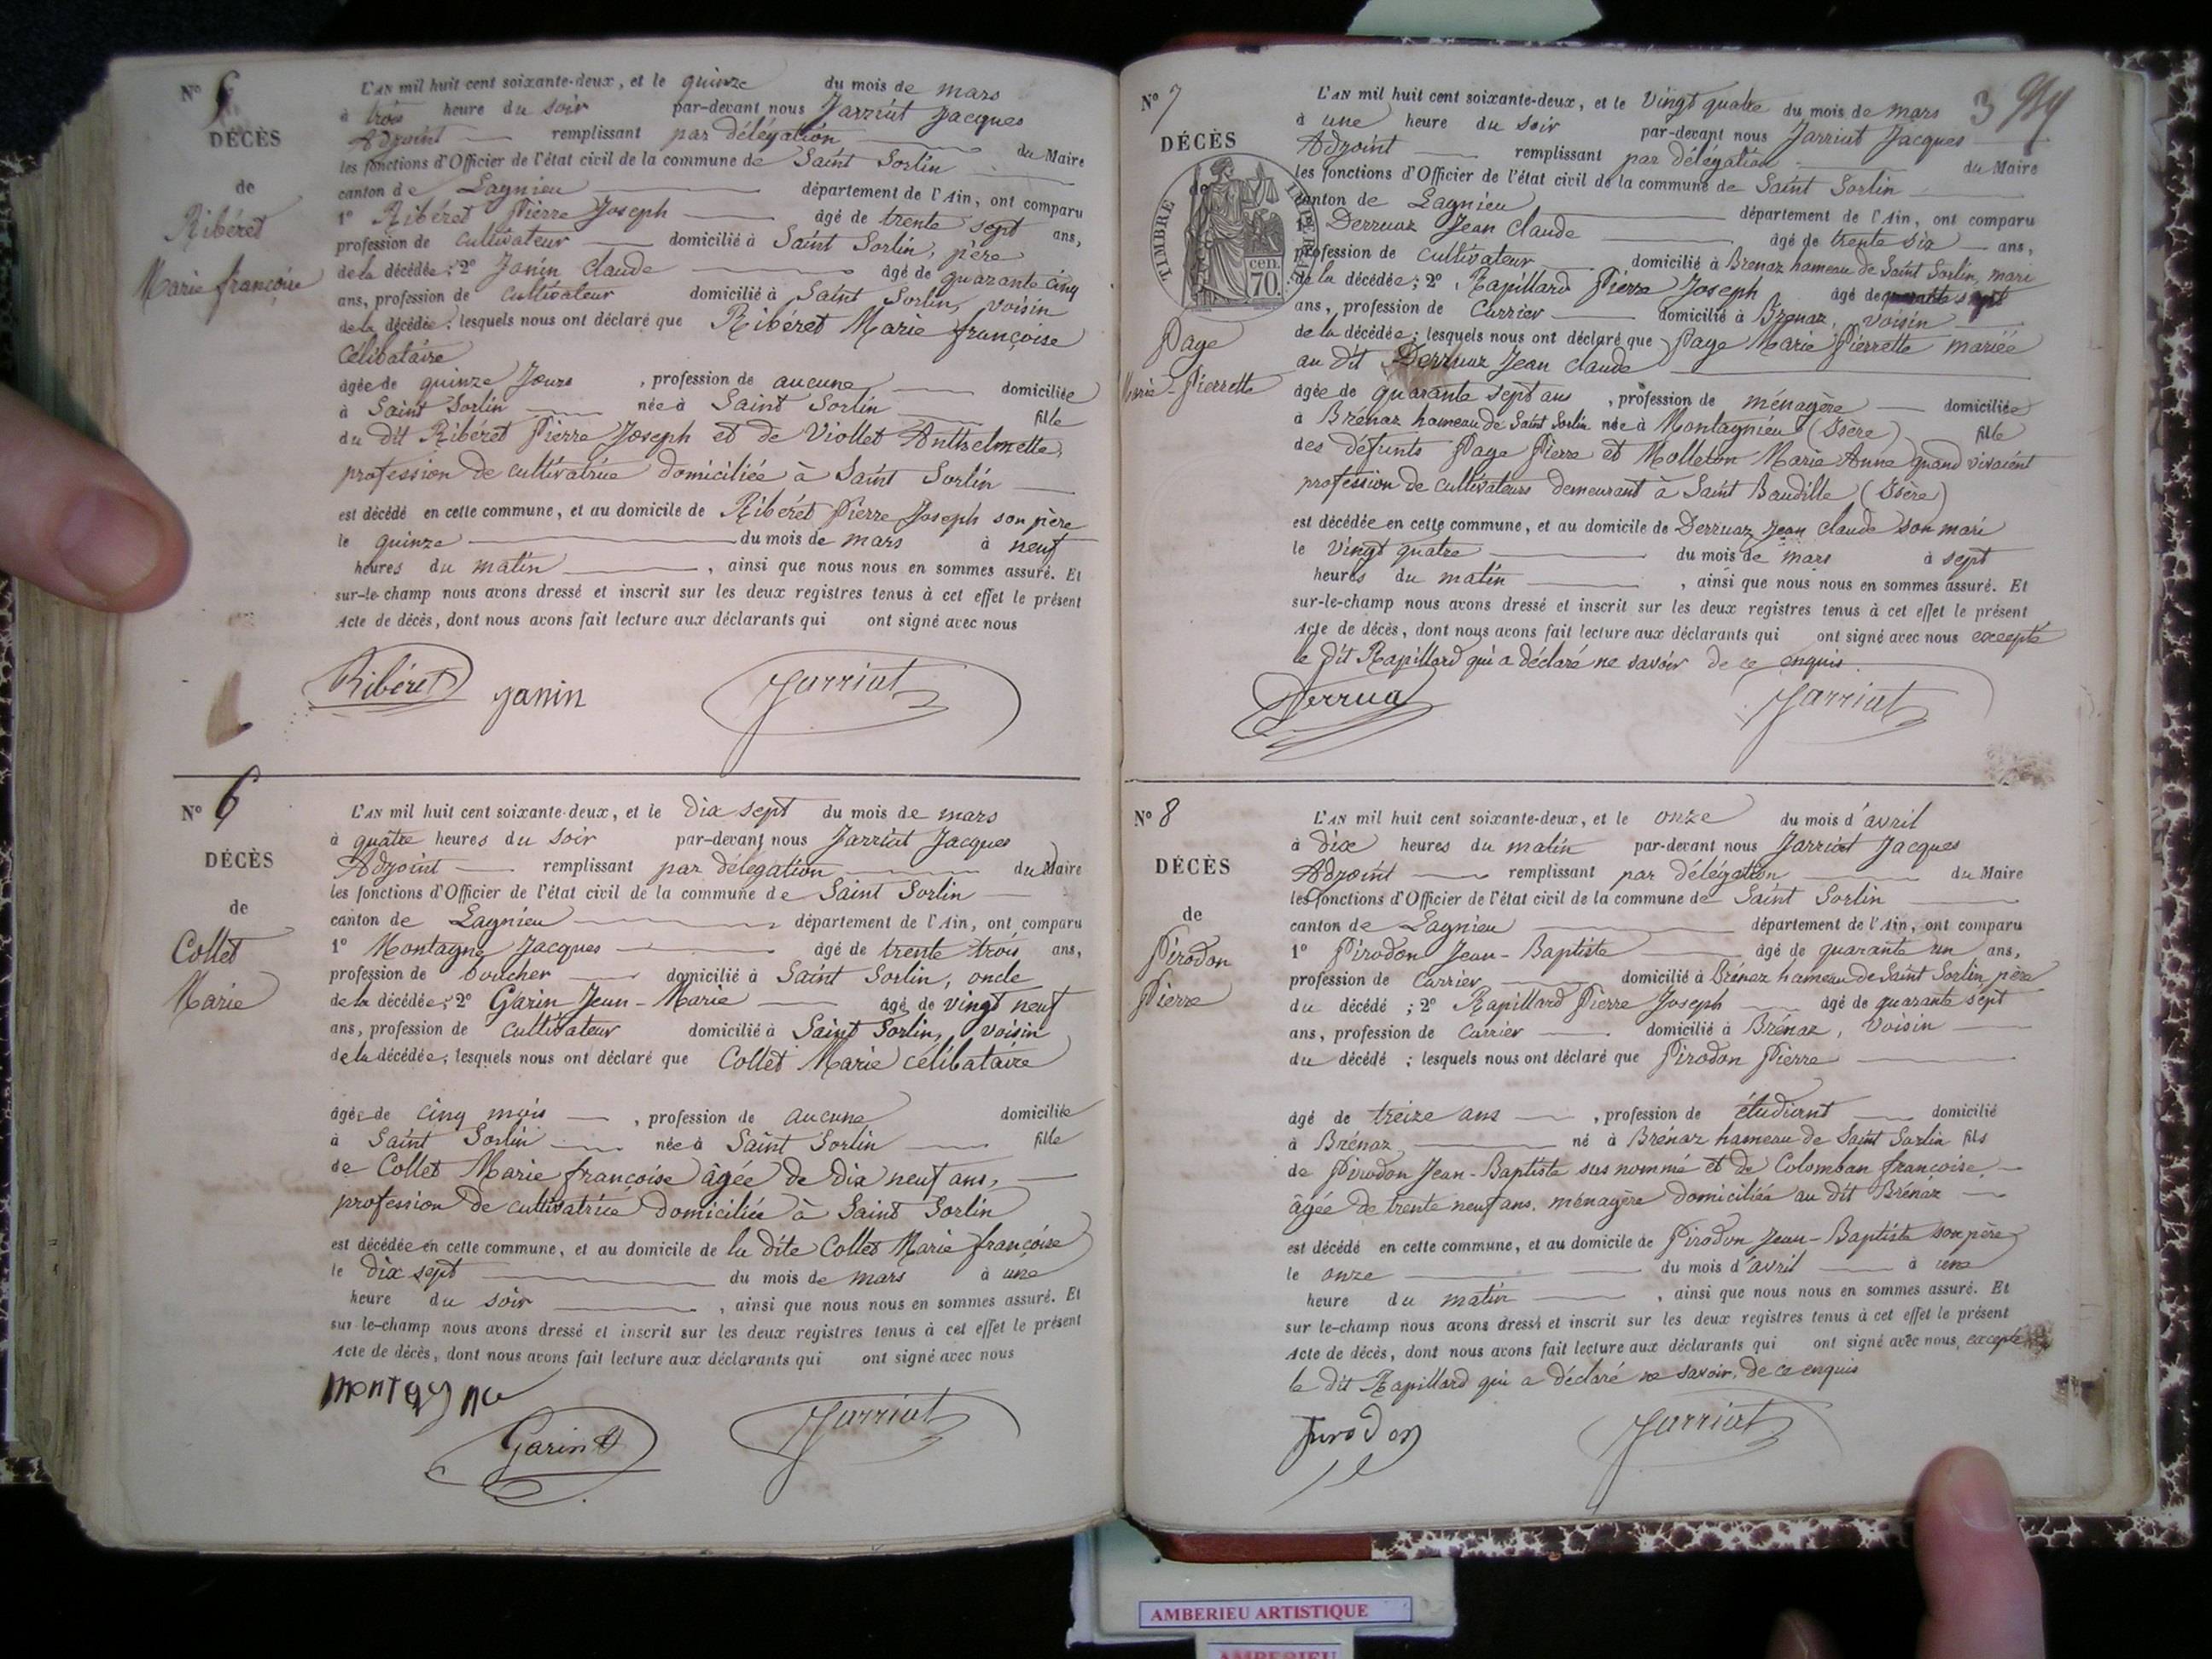 N° 6
DÉCÈS
de
Ribéret
Marie françoise
L'AN mil huit cent soixante-deux, et le quinze du mois de mars
à trois heure du soir par-devant nous Jarriat Jacques
Adjoint remplissant par délégation du Maire
les fonctions d'Officier de l'état civil de la commune de Saint Sorlin
canton de Lagnieu département de l'Ain, ont comparu
1° Ribéret Pierre Joseph âgé de trente sept ans,
profession de cultivateur domicilié à Saint Sorlin, père
de la décédée; 2° Janin Claude âgé de quarante cinq
ans, profession de cultivateur domicilié à Saint Sorlin, voisin
de la décédée; lesquels nous ont déclaré que Ribéret Marie françoise
Célibataire
âgée de quinze Jours, profession de aucune domiciliée
à Saint Sorlin née à Saint Sorlin fille
du dit Ribéret Pierre Joseph et de Viollet Anthelmette,
profession de cultivatrice domiciliée à Saint Sorlin
est décédé en cette commune, et au domicile de Ribéret Pierre Joseph son père
le quinze du mois de mars à neuf
heures du matin, ainsi que nous nous en sommes assuré. Et
sur-le-champ nous avons dressé et inscrit sur les deux registres tenus à cet effet le présent
Acte de décès, dont nous avons fait lecture aux déclarants qui ont signé avec nous
Ribéret janin Jarriat
N° 6
DÉCÈS
de
Collet
Marie
L'AN mil huit cent soixante-deux, et le dix sept du mois de mars
à quatre heures du soir par-devant nous Jarriat Jacques
Adjoint remplissant par délégation du Maire
les fonctions d'Officier de l'état civil de la commune de Saint Sorlin
canton de Lagnieu département de l'Ain, ont comparu
1° Montagne Jacques âgé de trente trois ans,
profession de boucher domicilié à Saint Sorlin, oncle
de la décédée; 2° Garin Jean-Marie âgé de vingt neuf
ans, profession de cultivateur domicilié à Saint Sorlin, voisin
de la décédée; lesquels nous ont déclaré que Collet Marie Célibataire
âgée de cinq mois, profession de aucune domiciliée
à Saint Sorlin née à Saint Sorlin fille
de Collet Marie françoise âgée de dix neuf ans,
profession de cultivatrice domiciliée à Saint Sorlin
est décédée en cette commune, et au domicile de la dite Collet Marie françoise
le dix sept du mois de mars à une
heure du soir, ainsi que nous nous en sommes assuré. Et
sur-le-champ nous avons dressé et inscrit sur les deux registres tenus à cet effet le présent
Acte de décès, dont nous avons fait lecture aux déclarants qui ont signé avec nous
montagne
Garin Jarriat
N° 7
DÉCÈS
de
TIMBRE
cen.
70.
Page
Marie-Pierrette
3
L'AN mil huit cent soixante-deux, et le vingt quatre du mois de mars
à une heure du soir par-devant nous Jarriat Jacques
Adjoint remplissant par délégation du Maire
les fonctions d'Officier de l'état civil de la commune de Saint Sorlin
canton de Lagnieu département de l'Ain, ont comparu
1° Derruaz Jean claude âgé de trente six ans,
profession de cultivateur domicilié à Brenaz hameau de Saint Sorlin, mari
de la décédée; 2° Rapillard Pierre Joseph âgé de quarante sept
ans, profession de Carrier domicilié à Brenaz, voisin
de la décédée; lesquels nous ont déclaré que Page Marie Pierrette mariée
au dit Derruaz Jean claude
âgée de quarante sept ans, profession de ménagère domiciliée
à Brénaz hameau de Saint Sorlin née à Montagnieu (Isère) fille
des défunts Page Pierre et Molleton Marie Anne quand vivaient
profession de cultivateurs demeurant à Saint Baudille (Isère)
est décédée en cette commune, et au domicile de Derruaz Jean claude son mari
le vingt quatre du mois de mars à sept
heures du matin, ainsi que nous nous en sommes assuré. Et
sur-le-champ nous avons dressé et inscrit sur les deux registres tenus à cet effet le présent
Acte de décès, dont nous avons fait lecture aux déclarants qui ont signé avec nous excepté
le dit Rapillard qui a déclaré ne savoir de ce enquis.
Derrua Jarriat
N° 8
DÉCÈS
de
Pirodon
Pierre
L'AN mil huit cent soixante-deux, et le onze du mois d'avril
à dix heures du matin par-devant nous Jarriat Jacques
Adjoint remplissant par délégation du Maire
les fonctions d'Officier de l'état civil de la commune de Saint Sorlin
canton de Lagnieu département de l'Ain, ont comparu
1° Pirodon Jean-Baptiste âgé de quarante un ans,
profession de Carrier domicilié à Brénaz hameau de Saint Sorlin, père
du décédé; 2° Rapillard Pierre Joseph âgé de quarante sept
ans, profession de Carrier domicilié à Brénaz, voisin
du décédé; lesquels nous ont déclaré que Pirodon Pierre
âgé de treize ans, profession de étudiant domicilié
à Brénaz né à Brénaz hameau de Saint Sorlin fils
de Pirodon Jean-Baptiste sus nommé et de Colomban françoise,
âgée de trente neuf ans, ménagère domiciliée au dit Brénaz
est décédé en cette commune, et au domicile de Pirodon Jean-Baptiste son père
le onze du mois d'avril à une
heure du matin, ainsi que nous nous en sommes assuré. Et
sur le-champ nous avons dressé et inscrit sur les deux registres tenus à cet effet le présent
Acte de décès, dont nous avons fait lecture aux déclarants qui ont signé avec nous, excepté
le dit Rapillard qui a déclaré ne savoir, de ce enquis
Pirodon Jarriat
AMBERIEU ARTISTIQUE
AMBERIEU